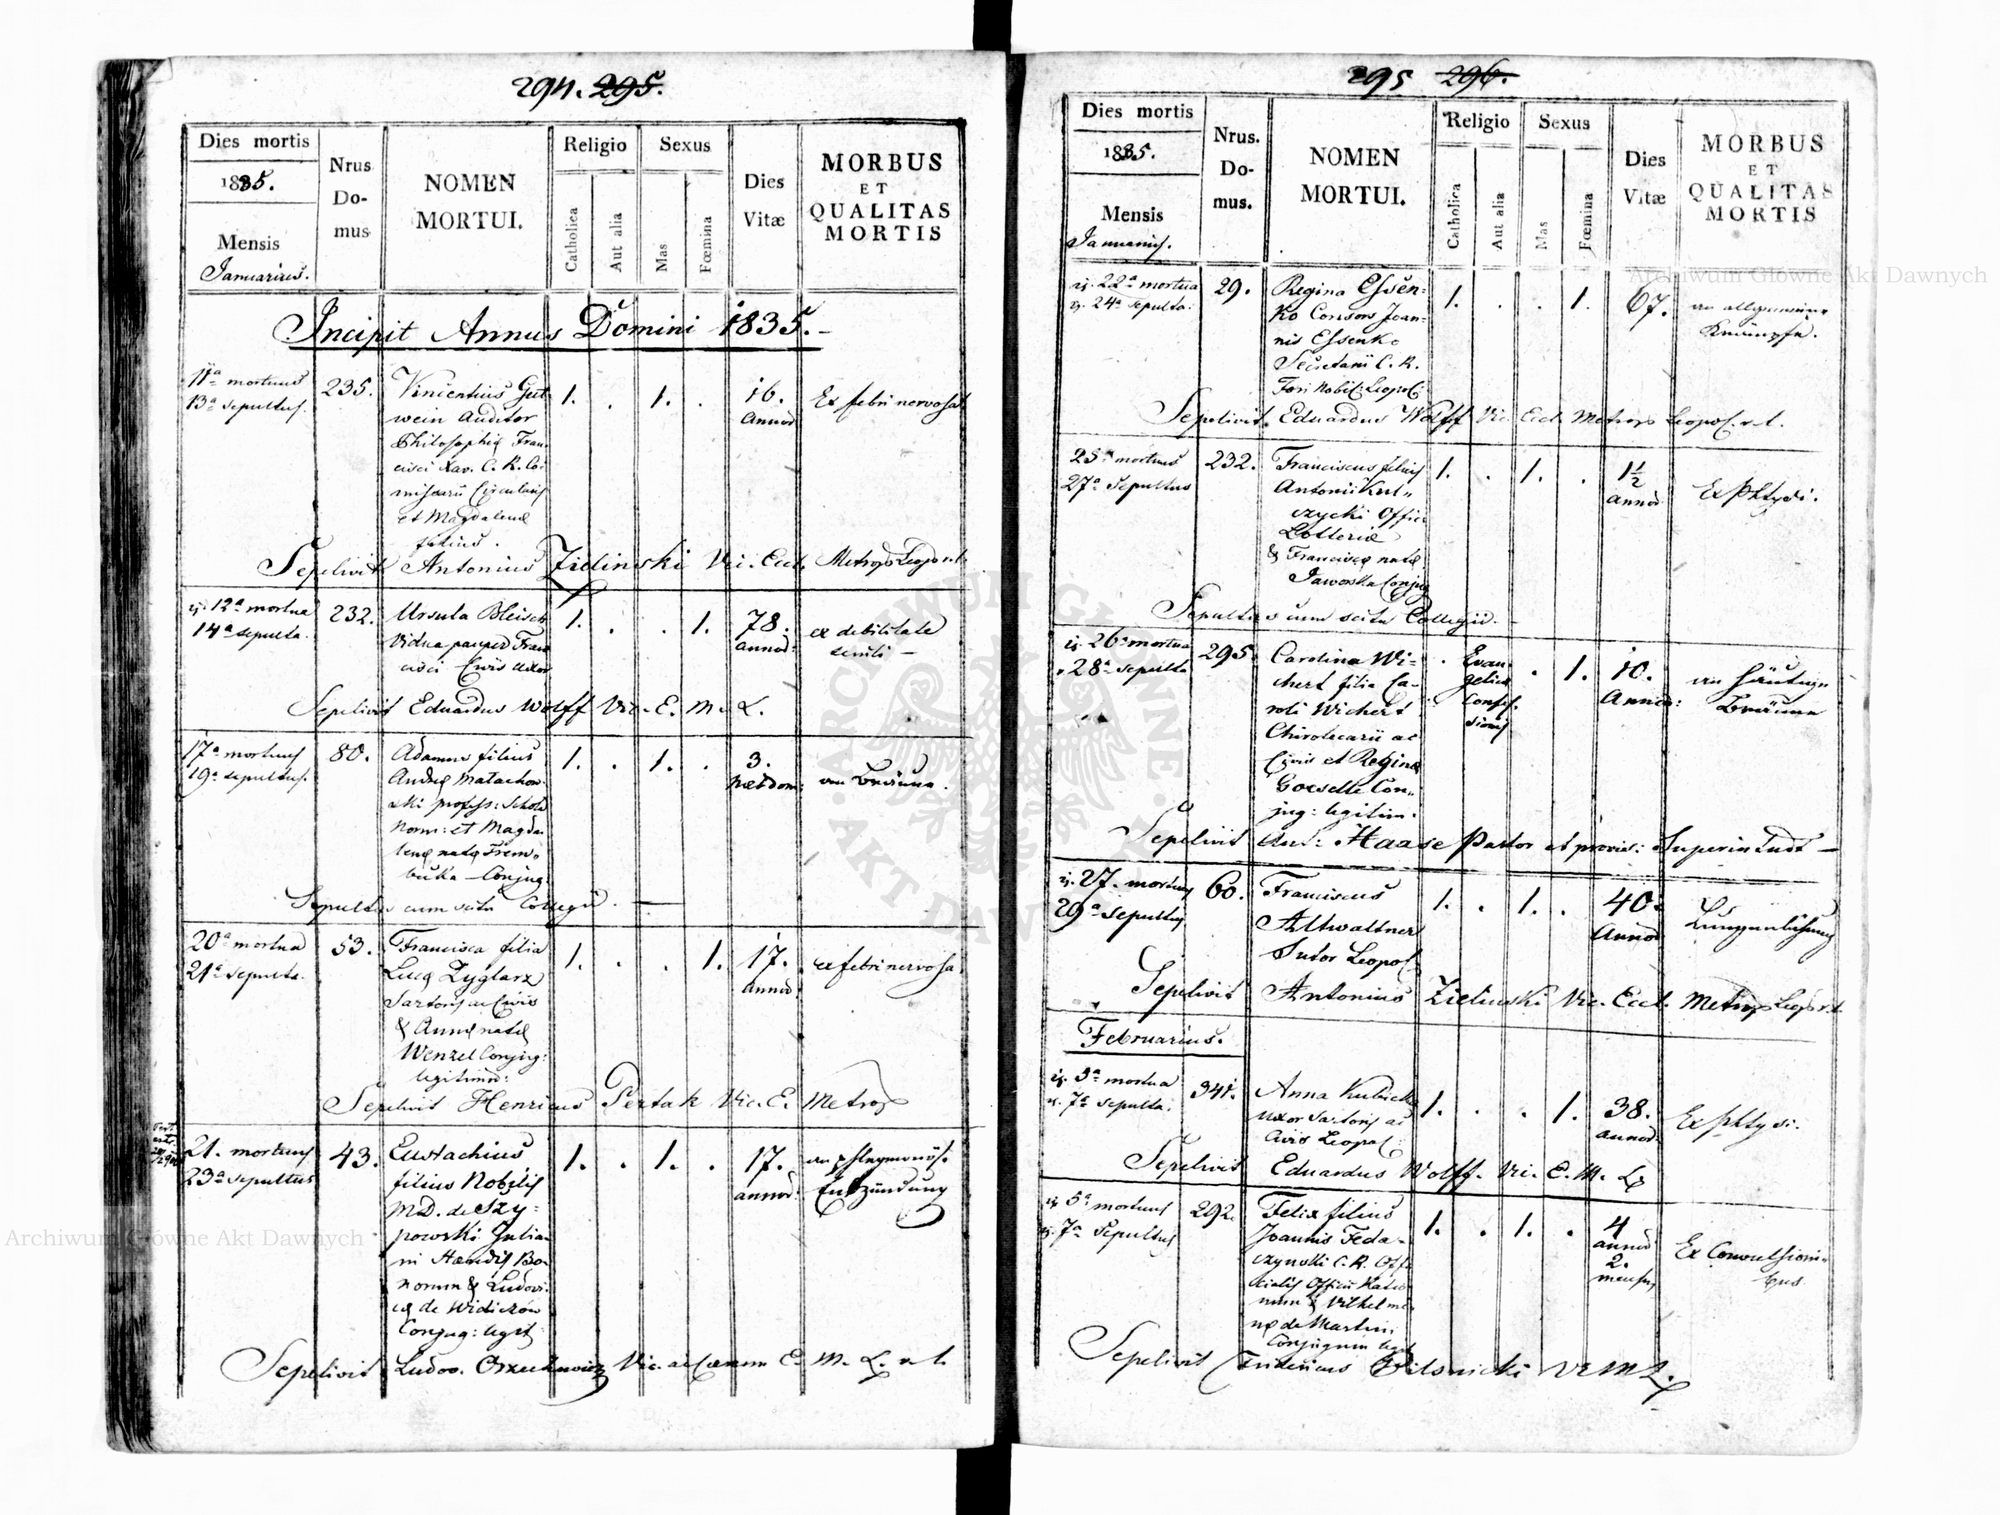 294. 295.
Dies mortis
1835.
Mensis
Januarius.
Nrus
Do-
mus
NOMEN
MORTUI.
Religio
Catholica
Aut alia
Sexus
Mas
Fœmina
Dies
Vitæ
MORBUS
ET
QUALITAS
MORTIS
Incipit Annus Domini 1835.-
11a mortuus
13a sepultus.
235.
Vincentius Gut
wein Auditor
Philosophiæ Fran
cisci Xav. C. R. Co
missarii Circularis
et Magdalenæ
filius.
1. . 1. .
16.
Annor
Ex febri nervosa
Sepelivit Antonius Zielinski Vic. Eccl. Metrop Leopo
12a mortua
14a sepulta.
232.
Ursula Bleisch
Vidua pauper Fran
cisci Civis uxor
1. . . 1.
78.
annor:
ex debilitate
senili -
Sepelivit Eduardus Wolff Vic. E. M. L.
17a mortuus
19a sepultus.
80.
Adamus filius
Andreæ Matachow
ski profess: Scholæ
Norm: et Magda
lenæ natæ Frem
bucka - Conjug:
1. . 1. .
3.
hebdom:
an Bräune.
Sepultus cum scitu Collegii.
20a mortua
21a sepulta.
53.
Francisca filia
Lucæ Zyglarz
Sartoris ac Civis
& Annæ natæ
Wenzel Conjug:
legitimor:
1. . . 1.
17.
annor.
ex febri nervosa.
Sepelivit Henricus Pertak Vic. E. Metrop
21. mortuus
23a sepultus
43.
Eustachius
filius Nobilis
MD. de Szy-
powski Julia-
ni Hæredis Bo-
norum & Ludovi-
cæ de Widiczów
Conjug: legit
1. . 1. .
17.
annor.
an phlegmonös.
Entzündung
Sepelivit Ludov. Orzechowicz Vic. E. M. L.
295 296.
Dies mortis
1835.
Mensis
Januarius.
Nrus.
Do-
mus.
NOMEN
MORTUI.
Religio
Catholica
Aut alia
Sexus
Mas
Fœmina
Dies
Vitæ
MORBUS
ET
QUALITAS
MORTIS
22a mortua
24a sepulta.
29.
Regina Essen-
ko Consors Joan-
nis Essenko
Secretarii C. R.
Fori Nobil: Leopol:
1. . . 1.
67.
an allgemeine
Krämpfe.
Sepelivit Eduardus Wolff Vic. Eccl. Metrop Leopol.
25a mortuus
27a sepultus
232.
Franciscus filius
Antonii Kul-
czycki Offic:
Lotteriæ
& Franciscæ natæ
Jaworska Conjug
1. . 1. .
1½
annor
Ex Phtysi.
Sepultus cum scitu Collegii.
26a mortua
28a sepulta
295.
Carolina Wi-
chert filia Ca-
roli Wichert
Chirotecarii ac
Civis et Reginæ
Goeselle Con-
jug: legitim.
. Evan
gelicæ
Confes
sionis
. 1.
10.
Annor:
an häutige
Bräune
Sepelivit Haase Pastor et provis: Superintndt -
27. mortuus
29a Sepultus
60.
Franciscus
Altwaltner
Sutor Leopol
1. . 1. .
40.
Annor
Lungenlähmung
Sepelivit Antonius Zielinski Vic. Eccl. Metrop Leop
Februarius.
3a mortua
7a sepulta.
341.
Anna Kubicka
uxor Sartoris ac
Civis Leopol:
1. . . 1.
38.
annor.
Ex phtysi.
Sepelivit Eduardus Wolff. Vic. E. M. L.
5a mortuus
7a Sepultus
292.
Felix filius
Joannis Feda-
czynski C. R. Offi
cialis Officii Ratio
num & Vilhelmi-
næ de Martini
Conjugum legit
1. . 1. .
4
annor
2.
mensium
Ex Convulsioni-
bus
Sepelivit Fridericus Pilsnicki VEML.
Archiwum Główne Akt Dawnych
Archiwum Główne Akt Dawnych
ARCHIWUM GŁÓWNE
AKT DAWNYCH